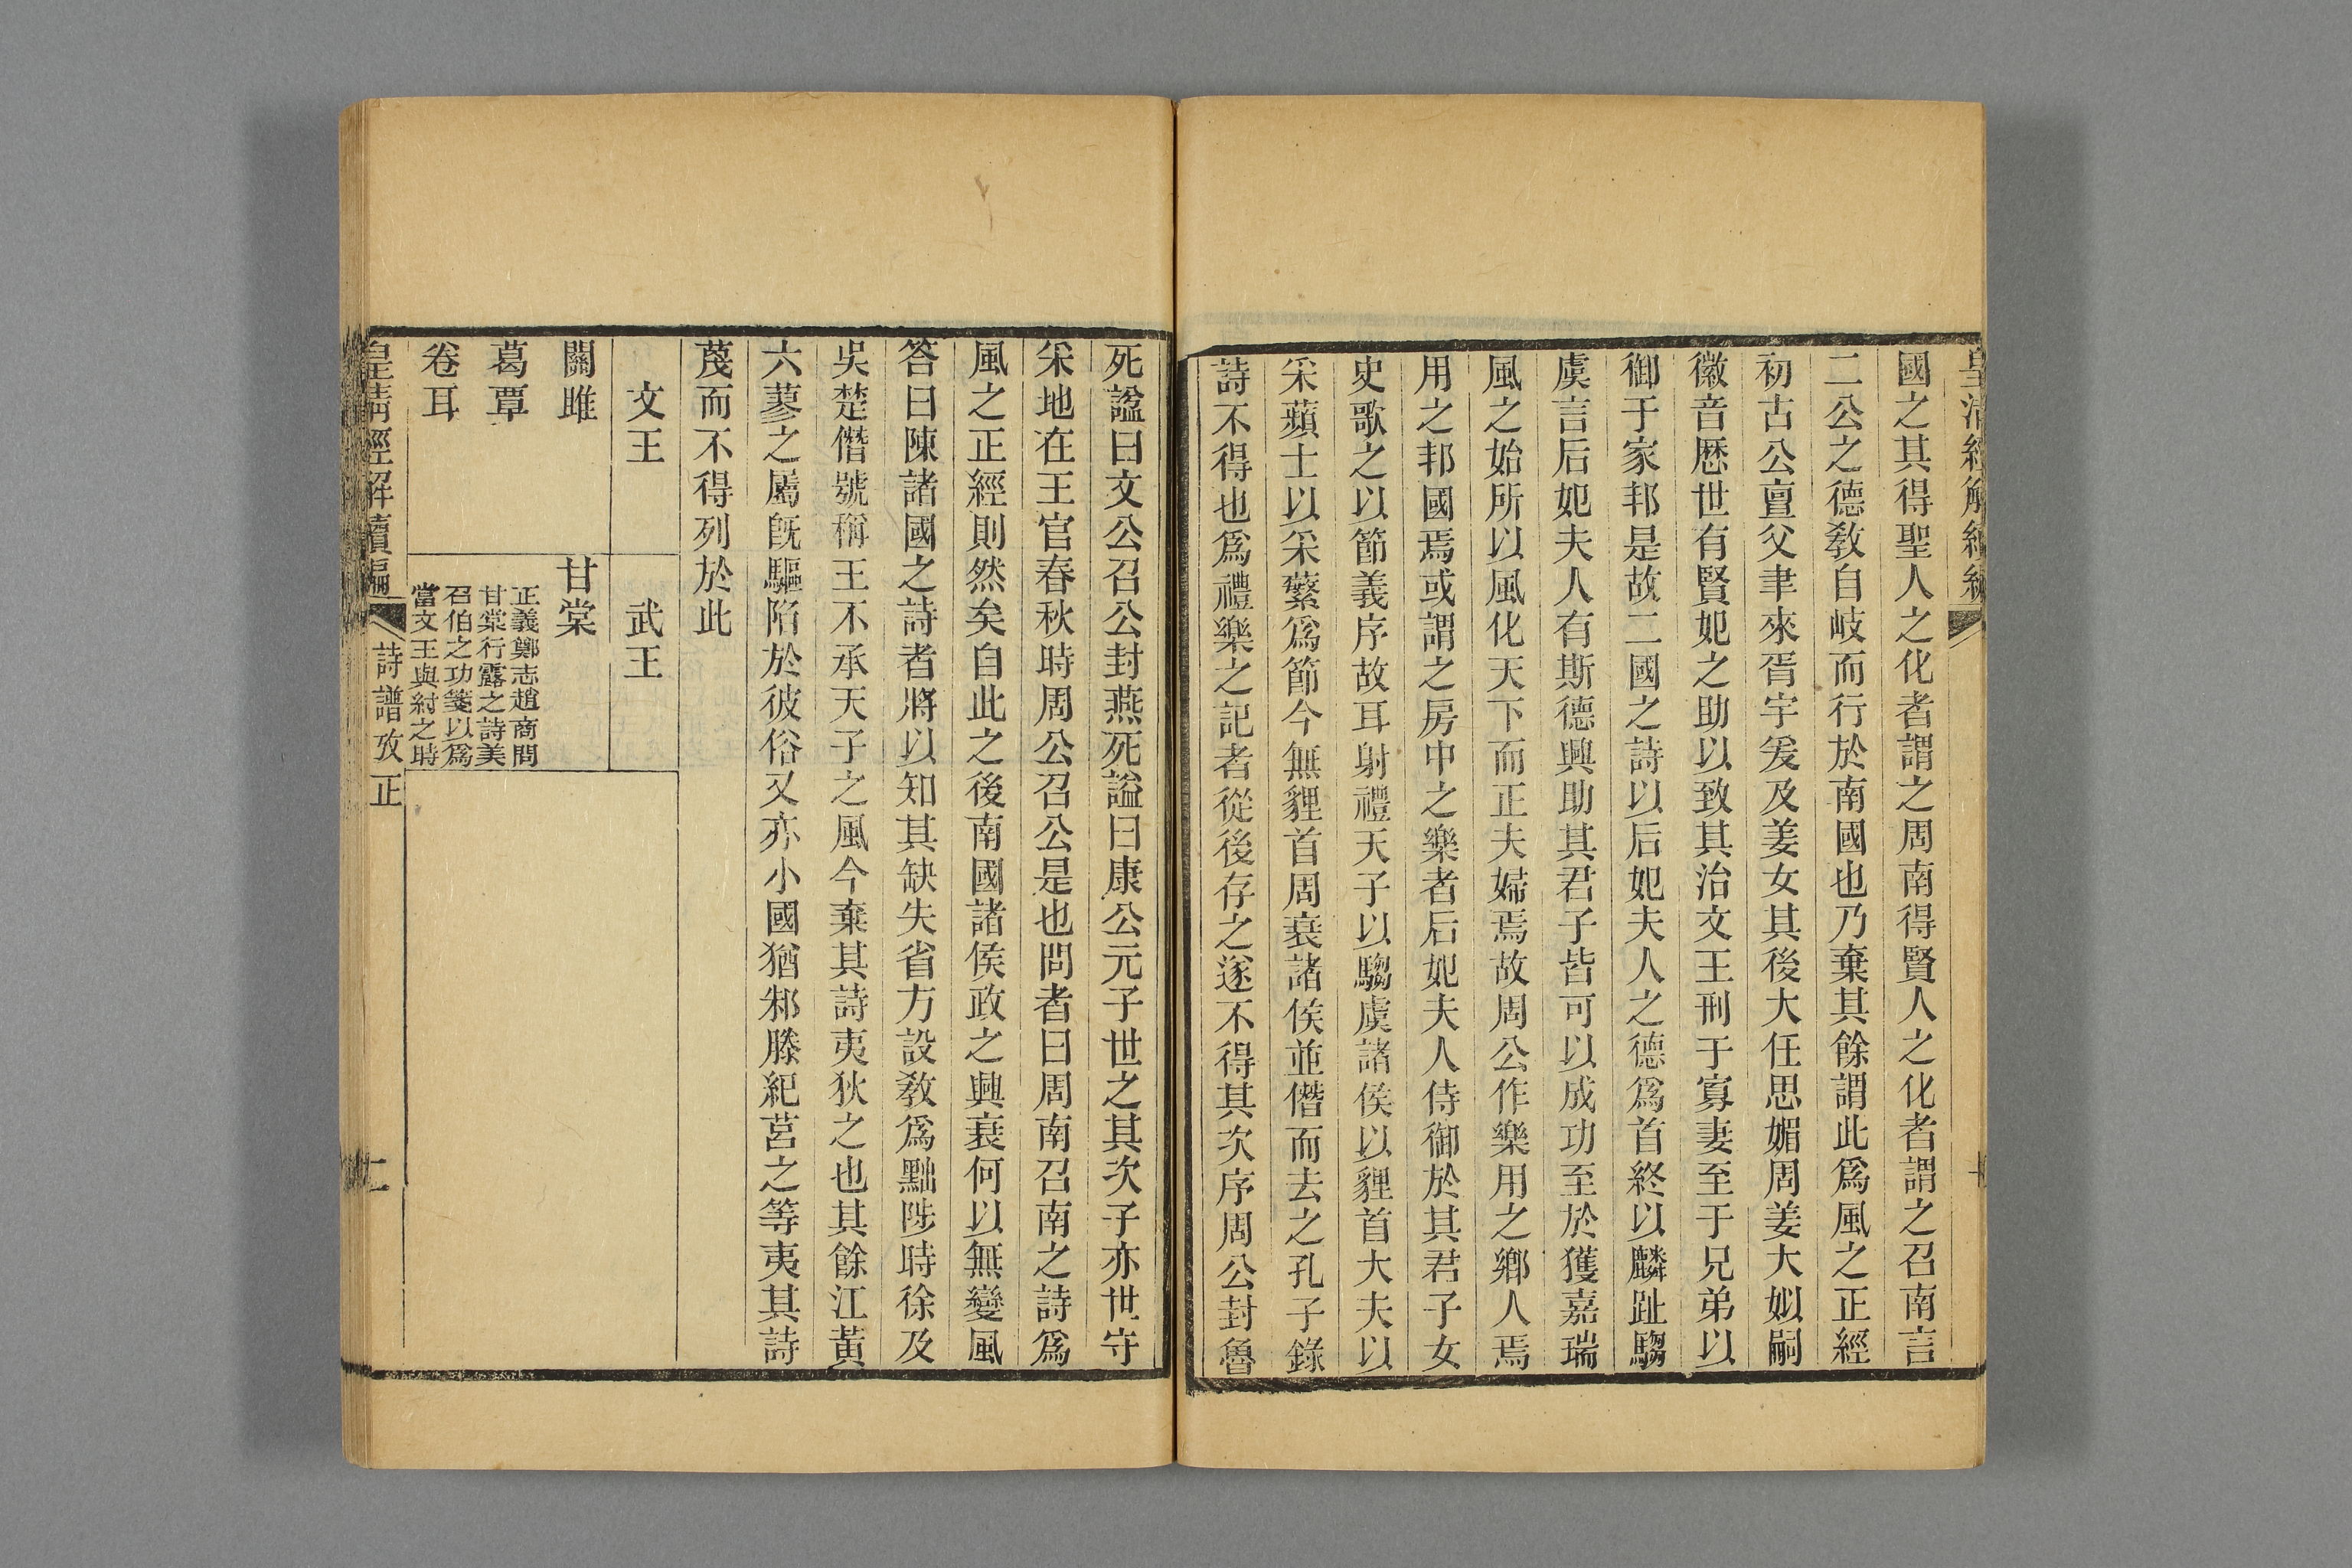 國之其得聖人之化者謂之周南得賢人之化者謂之召南言
二公之德敎自岐而行於南國也乃棄其餘謂此爲風之正經
初古公亶父聿來胥宇爰及姜女其後大任思媚周姜大姒嗣
徽音歷世有賢妃之助以致其治文王刑于寡妻至于兄弟以
御于家邦是故二國之詩以后妃夫人之德爲首終以麟趾騶
虞言后妃夫人有斯德興助其君子皆可以成功至於獲嘉瑞
風之始所以風化天下而正夫婦焉故周公作樂用之鄉人焉
用之邦國焉或謂之房中之樂者后妃夫人侍御於其君子女
史歌之以節義序故耳射禮天子以騶虞諸侯以貍首大夫以
采蘋士以采蘩爲節今無貍首周衰諸侯並僭而去之孔子錄
詩不得也爲禮樂之記者從後存之遂不得其次序周公封魯
死謚曰文公召公封燕死謚曰康公元子世之其次子亦世守
采地在王官春秋時周公召公是也問者曰周南召南之詩爲
風之正經則然矣自此之後南國諸侯政之興衰何以無變風
答曰陳諸國之詩者將以知其缺失省方設敎爲黜陟時徐及
吳楚僭號稱王不承天子之風今棄其詩夷狄之也其餘江黃
六蓼之屬旣驅陷於彼俗又亦小國猶邾滕紀莒之等夷其詩
蔑而不得列於此
文王
武王
關雎
甘棠
葛覃
卷耳
正義鄭志趙商問
甘棠行露之詩美
召伯之功箋以爲
當文王與紂之時
皇淸經解續編
詩譜攷正
二